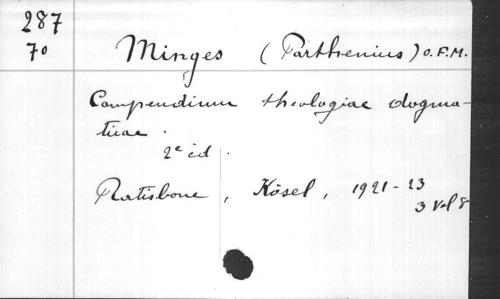 287
70
Minges (Parthenius) O.F.M.
Compendium theologiae dogma-
ticae.
2e éd.
Ratisbone, Kösel, 1921-23
3 Vol 8